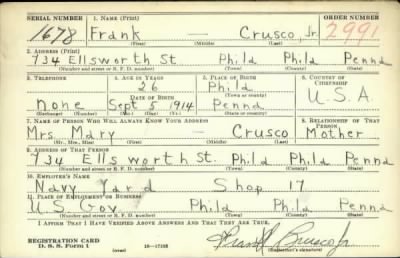 SERIAL NUMBER 1. NAME (Print) ORDER NUMBER
1678 Frank — Crusco, Jr. 2991
(First) (Middle) (Last)
2. ADDRESS (Print)
734 Ellsworth St. Phila Phila Penna
(Number and street or R. F. D. number) (Town) (County) (State)
3. TELEPHONE 4. AGE IN YEARS 5. PLACE OF BIRTH 6. COUNTRY OF CITIZENSHIP
26 Phila
DATE OF BIRTH (Town or county)
none Sept 5 1914 Penna U.S.A.
(Exchange) (Number) (Mo.) (Day) (Yr.) (State or country)
7. NAME OF PERSON WHO WILL ALWAYS KNOW YOUR ADDRESS 8. RELATIONSHIP OF THAT PERSON
Mrs. Mary — Crusco Mother
(Mr., Mrs., Miss) (First) (Middle) (Last)
9. ADDRESS OF THAT PERSON
734 Ellsworth St. Phila Phila Penna
(Number and street or R. F. D. number) (Town) (County) (State)
10. EMPLOYER'S NAME
Navy Yard Shop 17
11. PLACE OF EMPLOYMENT OR BUSINESS
U.S. Gov. Phila Phila Penna
(Number and street or R. F. D. number) (Town) (County) (State)
I AFFIRM THAT I HAVE VERIFIED ABOVE ANSWERS AND THAT THEY ARE TRUE.
REGISTRATION CARD
D. S. S. Form 1 (over) 16—17105 Frank Crusco Jr
(Registrant's signature)